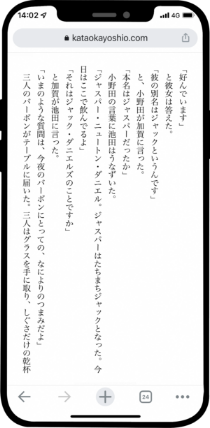 14:02
4G
kataokayoshio.com
「好んでいます」
と彼女は答えた。
「彼の別名はジャックというんです」
と、小野田が加賀に言った。
「本名はジャスパーだったか」
小野田の言葉に池田はうなずいた。
「ジャスパー・ニュートン・ダニエル。ジャスパーはたちまちジャックとなった。今
日はここで飲んでるよ」
「それはジャック・ダニエルズのことですか」
と加賀が池田に言った。
「いまのような質問は、今夜のバーボンにとっての、なによりのつまみだよ」
三人のバーボンがテーブルに届いた。三人はグラスを手に取り、しぐさだけの乾杯
24